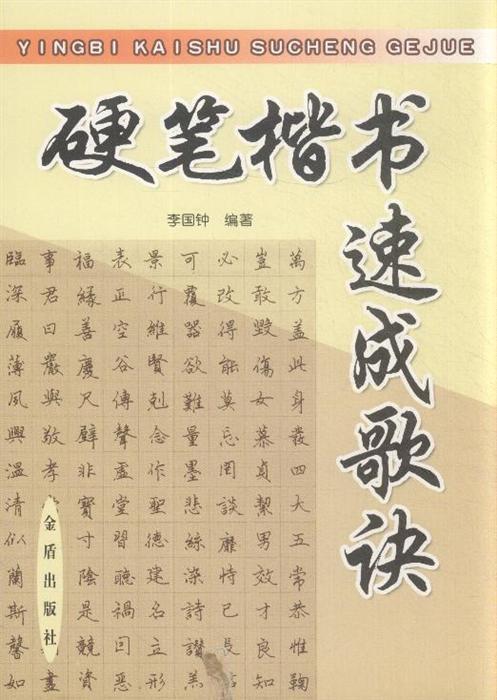 YINGBI KAISHU SUCHENG GEJUE
硬笔楷书
速成歌诀
李国钟 编著
萬方蓋此身發四大五常恭惟鞠
豈敢毀傷女慕貞絜男效才良知
必改得能莫忘罔談靡恃己長
可覆器欲難量墨悲絲染詩讚羔
景行維賢剋念作聖德建名立形
表正空谷傳聲虛堂習聽禍因惡
福緣善慶尺璧非寶寸陰是競資
事君曰嚴與敬孝盡
臨深履薄夙興溫清似蘭斯馨如
金盾出版社